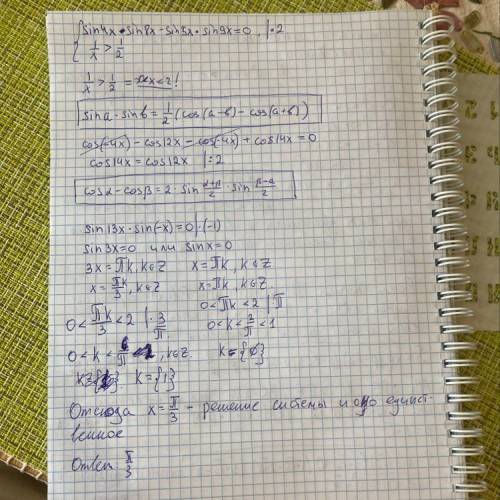 { sin4x · sin8x - sin5x · sin9x = 0, |·2
{ 1/x > 1/2
1/x > 1/2 = x < 2!
sina · sinb = 1/2 (cos(a-b) - cos(a+b))
cos(-4x) - cos12x - cos(-4x) + cos14x = 0
cos14x = cos12x |:2
cosα - cosβ = 2 · sin (α+β)/2 · sin (β-α)/2
sin13x · sin(-x) = 0 |·(-1)
sin3x=0 или sinx=0
3x = πk, k∈Z x = πk, k∈Z
x = πk/3, k∈Z x = πk, k∈Z.
0 < πk < 2 |π
0 < πk/3 < 2 |· 3/π 0 < k < 2/π < 1
0 < k < 6/π < 2, k∈Z. k = {∅}
k = {1}
Отсюда x = π/3 - решение системы и оно единст-
венное
Ответ π/3